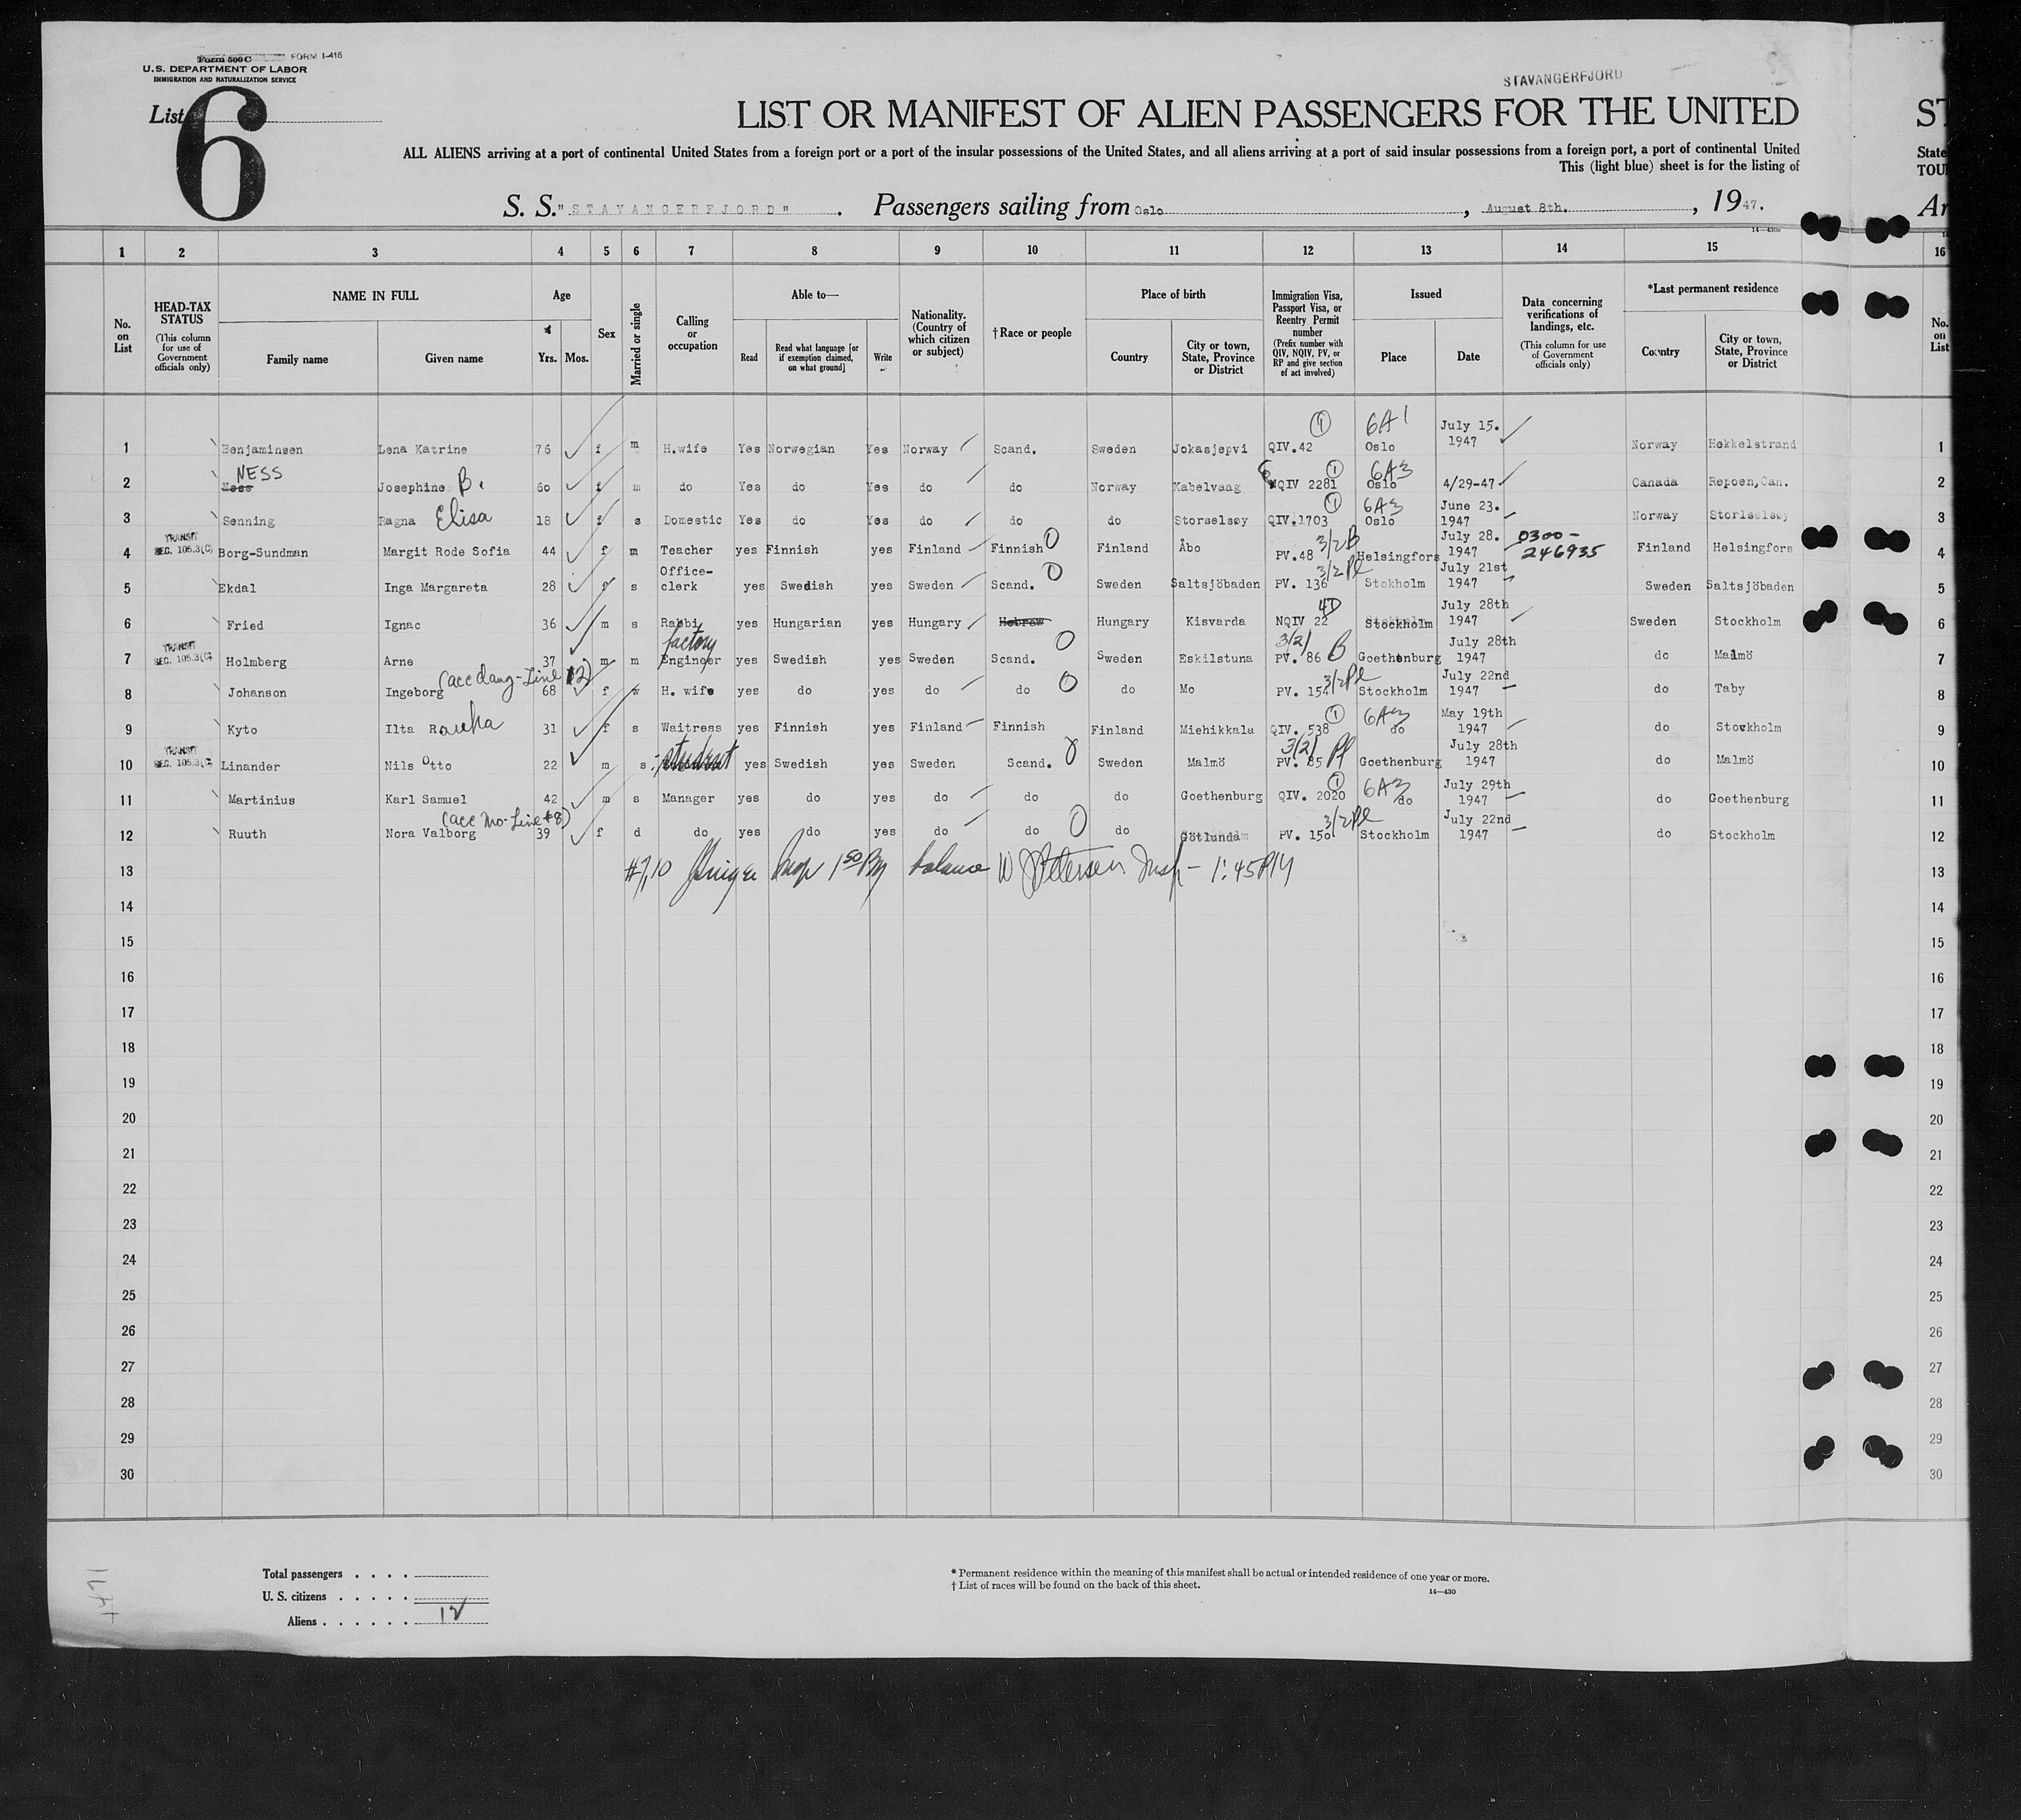 Form 500 C FORM I-416
U.S. DEPARTMENT OF LABOR
IMMIGRATION AND NATURALIZATION SERVICE
List 6
STAVANGERFJORD
LIST OR MANIFEST OF ALIEN PASSENGERS FOR THE UNITED ST
ALL ALIENS arriving at a port of continental United States from a foreign port or a port of the insular possessions of the United States, and all aliens arriving at a port of said insular possessions from a foreign port, a port of continental United State
This (light blue) sheet is for the listing of TOU
S. S. "STAVANGERFJORD". Passengers sailing from Oslo, August 8th., 1947. Ar
14—430a
1 2 3 4 5 6 7 8 9 10 11 12 13 14 15 16
No. on List
HEAD-TAX STATUS (This column for use of Government officials only)
NAME IN FULL
Family name Given name
Age
Yrs. Mos.
Sex
Married or single
Calling or occupation
Able to—
Read Read what language [or if exemption claimed, on what ground] Write
Nationality. (Country of which citizen or subject)
† Race or people
Place of birth
Country City or town, State, Province or District
Immigration Visa, Passport Visa, or Reentry Permit number (Prefix number with QIV, NQIV, PV, or RP and give section of act involved)
Issued
Place Date
Data concerning verifications of landings, etc. (This column for use of Government officials only)
*Last permanent residence
Country City or town, State, Province or District
No. on List
1 Benjaminsen Lena Katrine 76 f m H.wife Yes Norwegian Yes Norway Scand. Sweden Jokasjepvi QIV.42 1 6A1 Oslo July 15. 1947 Norway Hekkelstrand 1
2 Ness NESS Josephine B. 60 f m do Yes do Yes do do Norway Kabelvaag NQIV 2281 1 6A3 Oslo 4/29-47 Canada Repoen, Can. 2
3 Senning Ragna Elisa 18 f s Domestic Yes do Yes do do do Storselsøy QIV.1703 1 6A3 Oslo June 23. 1947 Norway 3
4 TRANSIT SEC. 105.3(C) Borg-Sundman Margit Rode Sofia 44 f m Teacher yes Finnish yes Finland Finnish 0 Finland Åbo PV.48 3/2B Helsingfors July 28. 1947 0300-246935 Finland Helsingfors 4
5 Ekdal Inga Margareta 28 f s Office-clerk yes Swedish yes Sweden Scand. 0 Sweden Saltsjöbaden PV. 136 3/2Pl Stokholm July 21st 1947 Sweden Saltsjöbaden 5
6 Fried Ignac 36 m s Rabbi yes Hungarian yes Hungary Hebrew Hungary Kisvarda NQIV 22 4D Stockholm July 28th 1947 Sweden Stockholm 6
7 TRANSIT SEC. 105.3(C) Holmberg Arne 37 m m factory Engineer yes Swedish yes Sweden Scand. 0 Sweden Eskilstuna PV. 86 3/2/B Goethenburg July 28th 1947 do Malmö 7
8 Johanson Ingeborg (acc daug-Line 12) 68 f w H. wife yes do yes do do 0 do Mo PV. 154 3/2Pl Stockholm July 22nd 1947 do Taby 8
9 Kyto Ilta Rauha 31 f s Waitress yes Finnish yes Finland Finnish Finland Miehikkala QIV. 538 1 6A3 do May 19th 1947 do Stockholm 9
10 TRANSIT SEC. 105.3(C) Linander Nils Otto 22 m s. student yes Swedish yes Sweden Scand. 0 Sweden Malmö PV. 85 3/2/Pl Goethenburg July 28th 1947 do Malmö 10
11 Martinius Karl Samuel 42 m s Manager yes do yes do do do Goethenburg QIV. 2020 1 6A3 do July 29th 1947 do Goethenburg 11
12 Ruuth Nora Valborg (acc Mo-Line #8) 39 f d do yes do yes do do 0 do Götlunda PV. 150 3/2Pl Stockholm July 22nd 1947 do Stockholm 12
13 #7,10 Insp 1 50 PM balance W Petersen Insp - 1:45 PM 13
14 14
15 15
16 16
17 17
18 18
19 19
20 20
21 21
22 22
23 23
24 24
25 25
26 26
27 27
28 28
29 29
30 30
Total passengers . . . .
U. S. citizens . . . . .
Aliens . . . . . . 12
* Permanent residence within the meaning of this manifest shall be actual or intended residence of one year or more.
† List of races will be found on the back of this sheet.
14—430